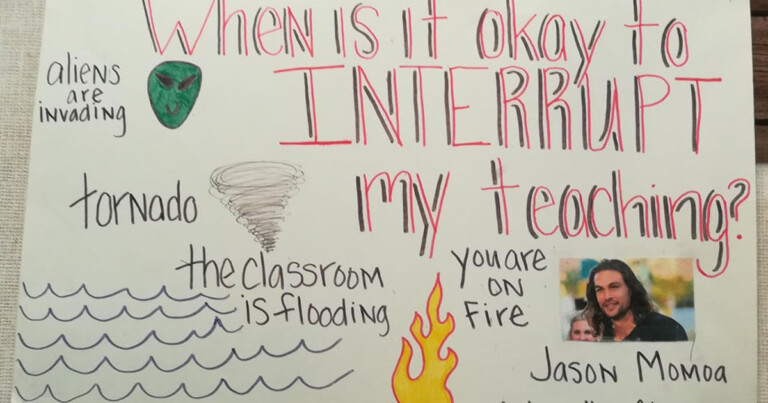 When is it okay to
INTERRUPT
my teaching?
aliens
are
invading
tornado
the classroom
is flooding
you are
on
fire
Jason Momoa